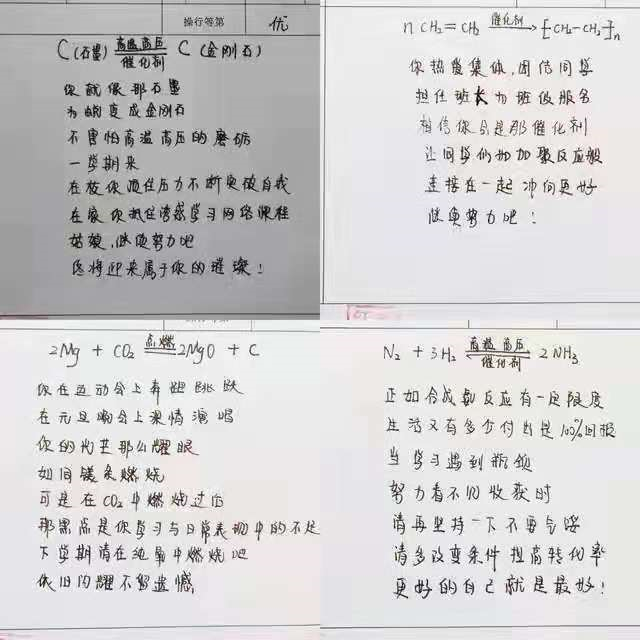 操行等第 优
C(石墨) 高温高压 催化剂 C(金刚石)
你就像那石墨
为蜕变成金刚石
不害怕高温高压的磨砺
一学期来
在校你顶住压力不断突破自我
在家你抵住诱惑学习网络课程
姑娘,继续努力吧
终将迎来属于你的璀璨!
nCH₂=CH₂ 催化剂 [CH₂-CH₂]n
你热爱集体,团结同学
担任班长为班级服务
相信你会是那催化剂
让同学们如加聚反应般
连接在一起 冲向更好
继续努力吧!
操行等第
2Mg + CO₂ 点燃 2MgO + C
你在运动会上奔跑跳跃
在元旦晚会上深情演唱
你的光芒那么耀眼
如同镁条燃烧
可是在CO₂中燃烧过后
那黑点是你学习与日常表现中的不足
下学期请在纯氧中燃烧吧
依旧闪耀不留遗憾
N₂ + 3H₂ 高温高压 催化剂 2NH₃
正如合成氨反应有一定限度
生活又有多少付出是100%回报
当学习遇到瓶颈
努力看不见收获时
请再坚持一下不要气馁
请多改变条件 提高转化率
更好的自己就是最好!